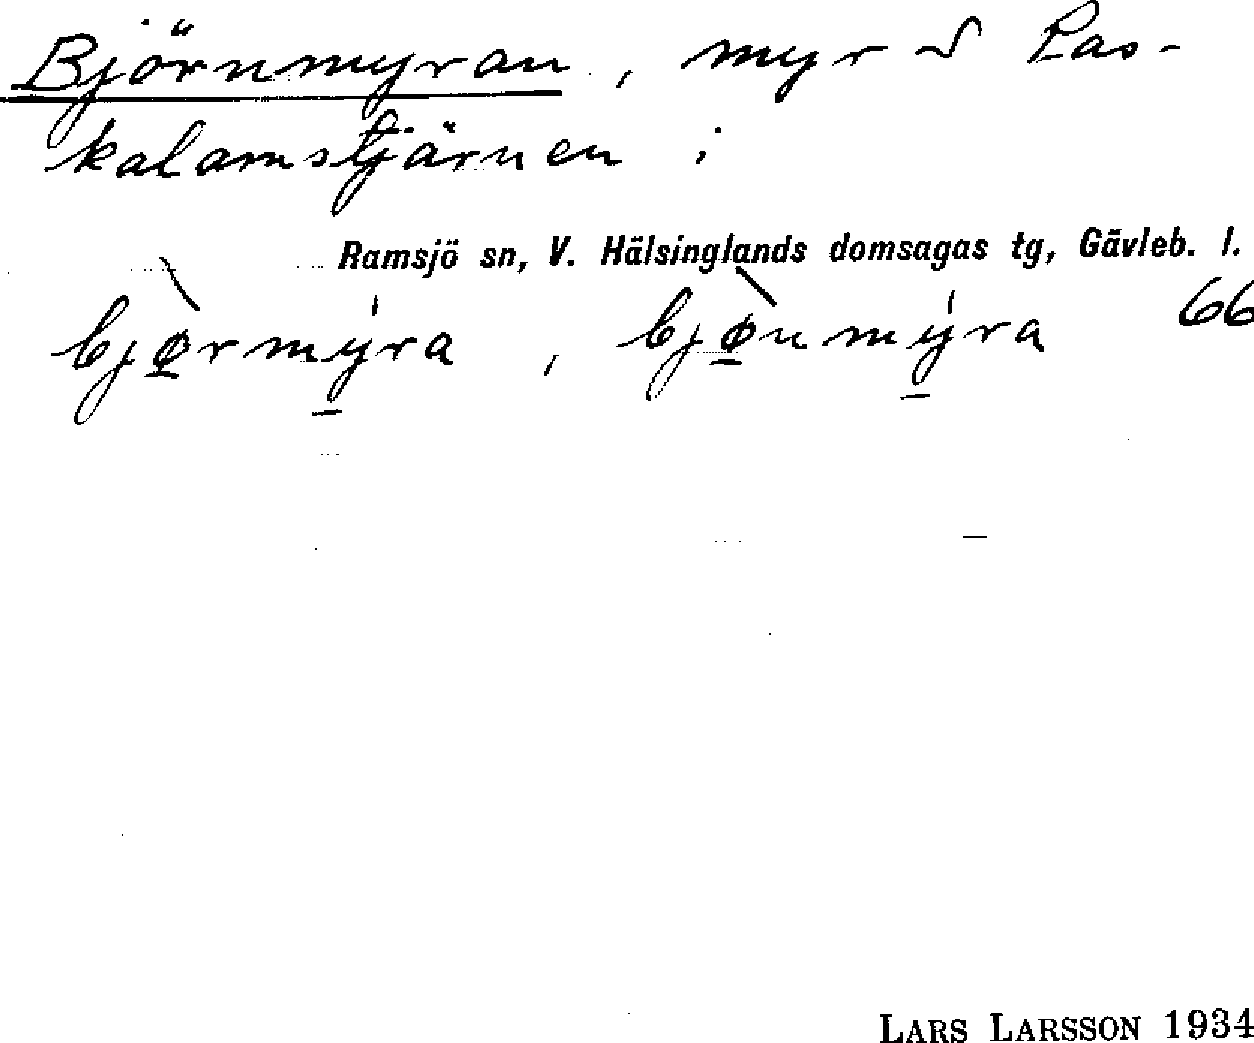 Björnmyran, myr S Pas-
kalamstjärnen i
Ramsjö sn, V. Hälsinglands domsagas tg, Gävleb. l.
bjø̀rmýra, bjø̀nmýra 66
LARS LARSSON 1934